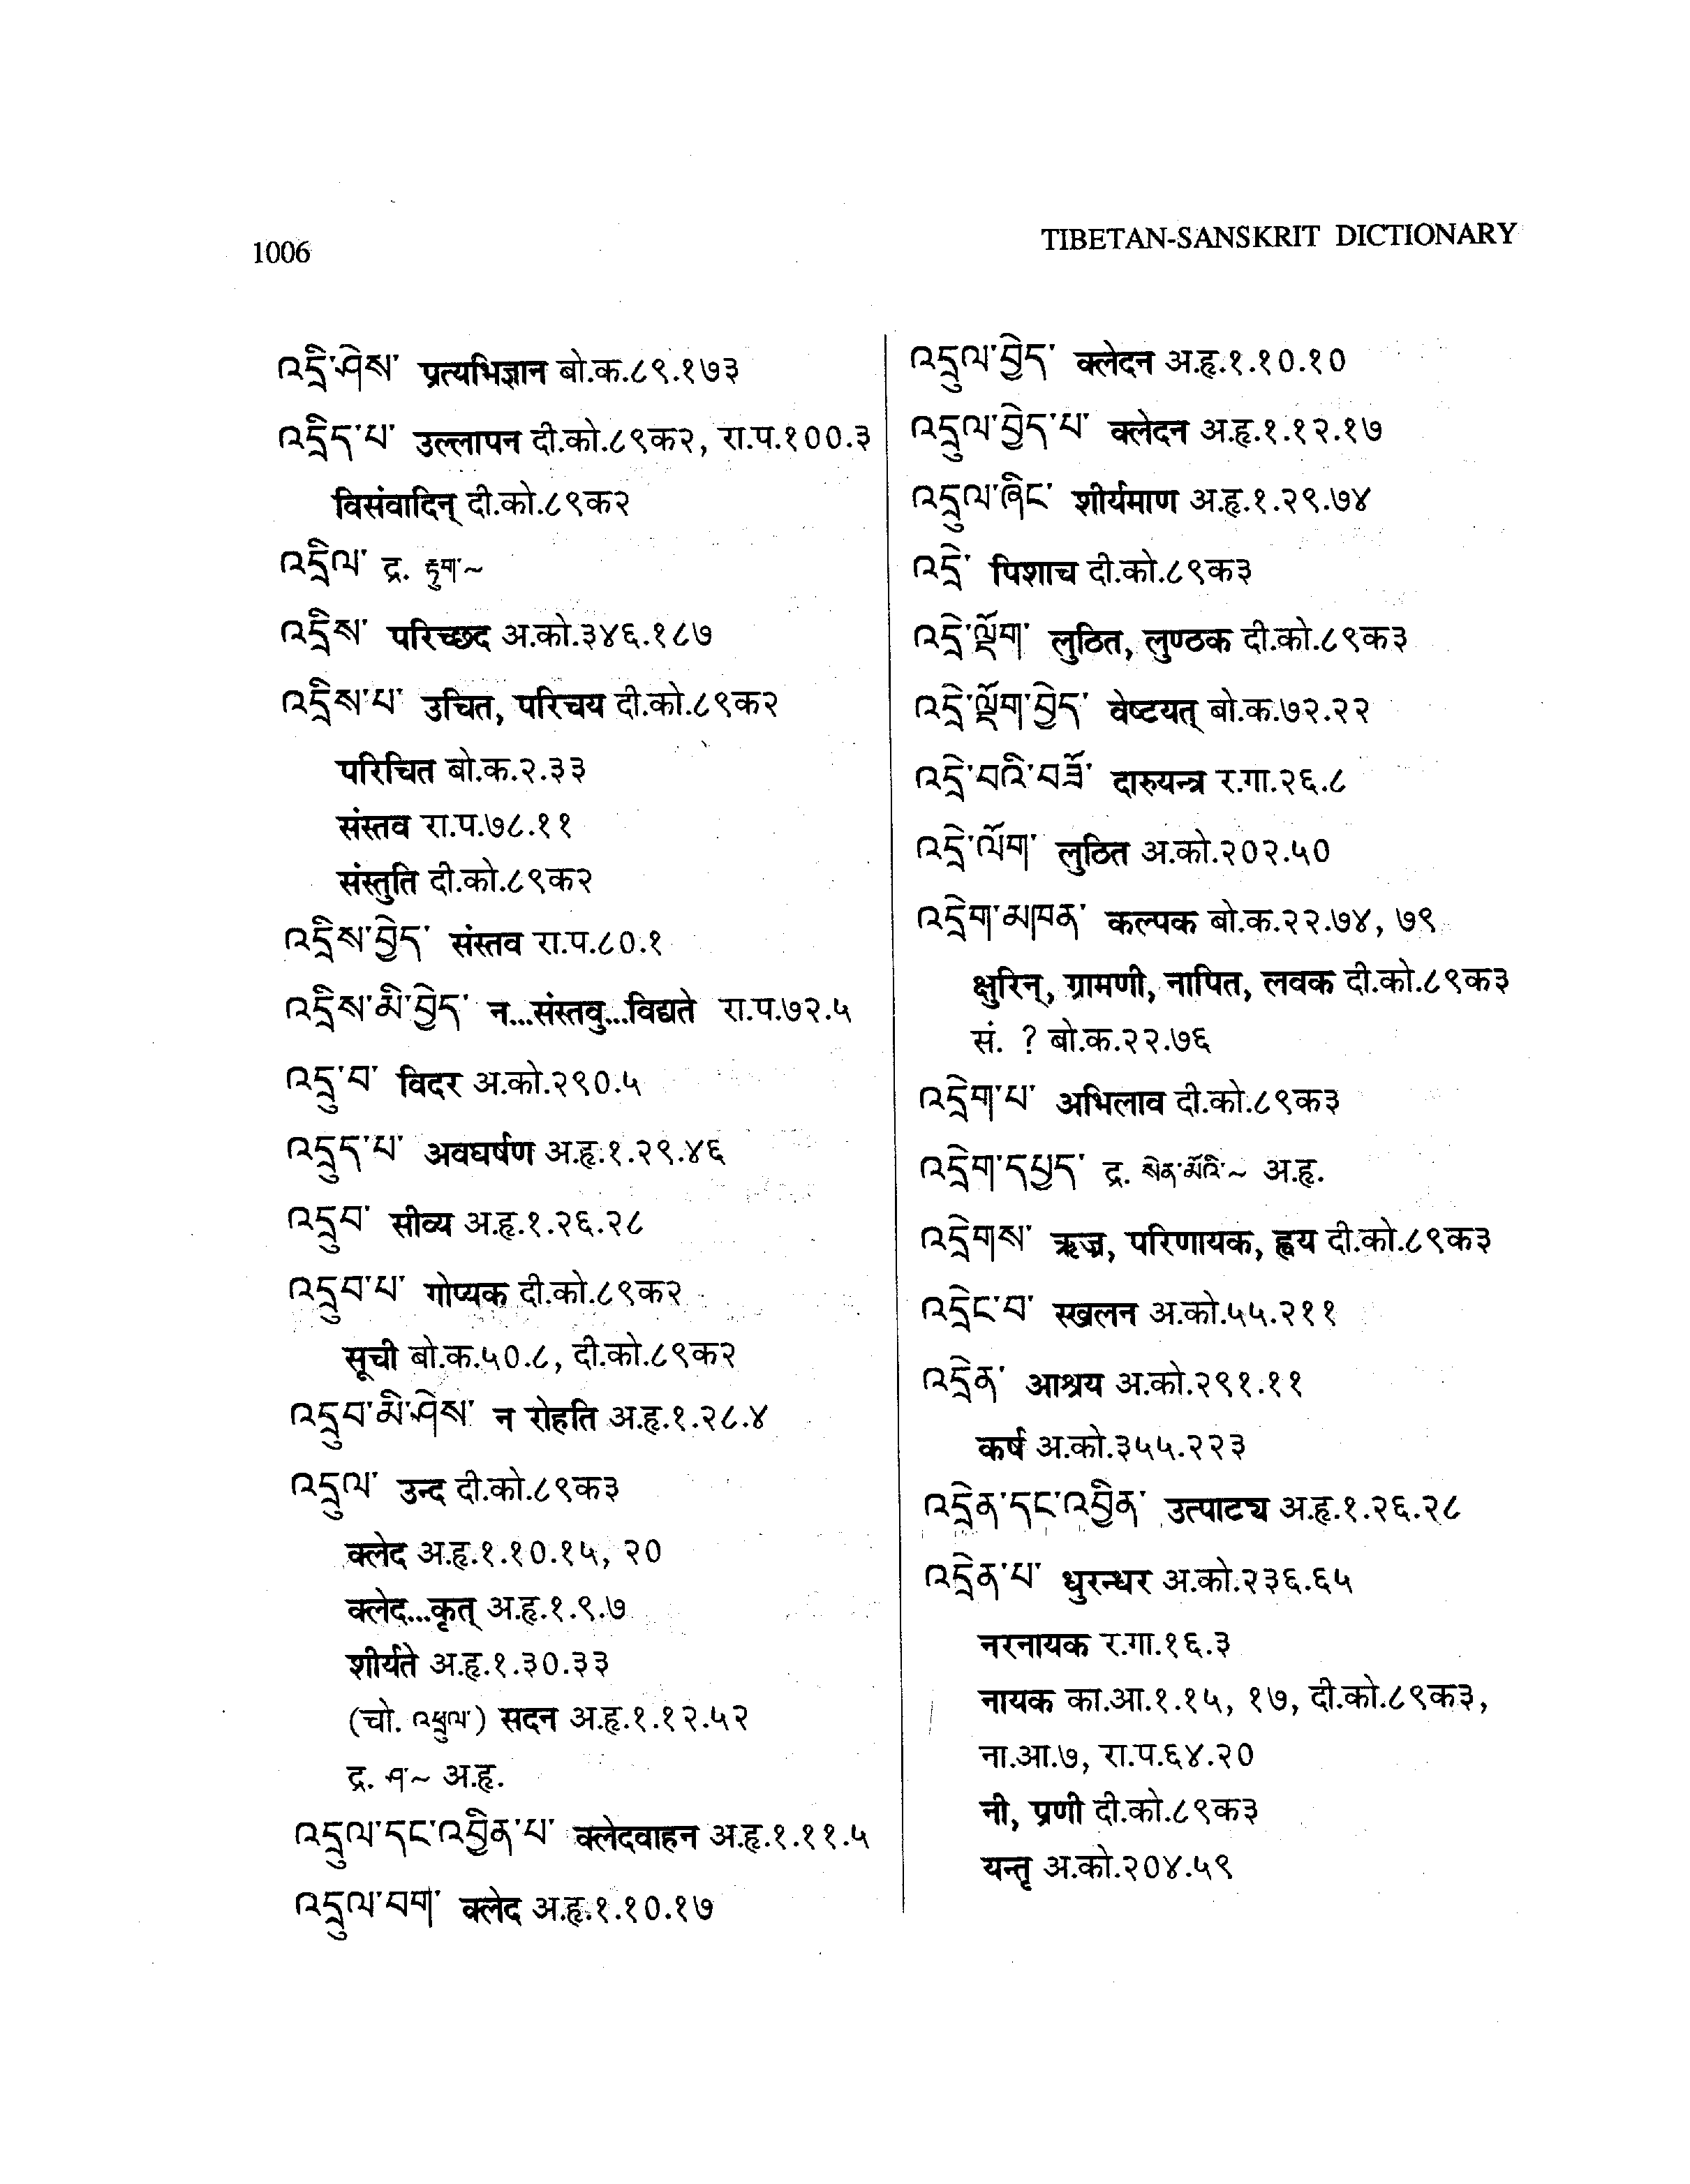 1006
TIBETAN-SANSKRIT DICTIONARY
འདྲི་ཤེས་ प्रत्यभिज्ञान बो.क.८९.१७३
འདྲིད་པ་ उल्लापन दी.को.८९क२, रा.प.१००.३
विसंवादिन् दी.को.८९क२
འདྲིལ་ द्र. ཧྲུག་~
འདྲིས་ परिच्छद अ.को.३४६.१८७
འདྲིས་པ་ उचित, परिचय दी.को.८९क२
परिचित बो.क.२.३३
संस्तव रा.प.७८.११
संस्तुति दी.को.८९क२
འདྲིས་བྱེད་ संस्तव रा.प.८०.१
འདྲིས་མི་བྱེད་ न...संस्तवु...विद्यते रा.प.७२.५
འདྲུ་བ་ विदर अ.को.२९०.५
འདྲུད་པ་ अवघर्षण अ.हृ.१.२९.४६
འདྲུབ་ सीव्य अ.हृ.१.२६.२८
འདྲུབ་པ་ गोप्यक दी.को.८९क२
सूची बो.क.५०.८, दी.को.८९क२
འདྲུབ་མི་ཤེས་ न रोहति अ.हृ.१.२८.४
འདྲུལ་ उन्द दी.को.८९क३
क्लेद अ.हृ.१.१०.१५, २०
क्लेद...कृत् अ.हृ.१.९.७
शीर्यते अ.हृ.१.३०.३३
(चो. འཕྲུལ་) सदन अ.हृ.१.१२.५२
द्र. ཤ་~ अ.हृ.
འདྲུལ་དང་འབྱིན་པ་ क्लेदवाहन अ.हृ.१.११.५
འདྲུལ་བག་ क्लेद अ.हृ.१.१०.१७
འདྲུལ་བྱེད་ क्लेदन अ.हृ.१.१०.१०
འདྲུལ་བྱེད་པ་ क्लेदन अ.हृ.१.१२.१७
འདྲུལ་ཞིང་ शीर्यमाण अ.हृ.१.२९.७४
འདྲེ་ पिशाच दी.को.८९क३
འདྲེ་ལྡོག་ लुठित, लुण्ठक दी.को.८९क३
འདྲེ་ལྡོག་བྱེད་ वेष्टयत् बो.क.७२.२२
འདྲེ་བའི་བཟོ་ दारुयन्त्र र.गा.२६.८
འདྲེ་ལོག་ लुठित अ.को.२०२.५०
འདྲེག་མཁན་ कल्पक बो.क.२२.७४, ७९
क्षुरिन्, ग्रामणी, नापित, लवक दी.को.८९क३
सं. ? बो.क.२२.७६
འདྲེག་པ་ अभिलाव दी.को.८९क३
འདྲེག་དཔྱད་ द्र. སེན་མོའི་~ अ.हृ.
འདྲེགས་ ऋज्र, परिणायक, ह्वय दी.को.८९क३
འདྲེང་བ་ स्खलन अ.को.५५.२११
འདྲེན་ आश्रय अ.को.२९१.११
कर्ष अ.को.३५५.२२३
འདྲེན་དང་འབྱིན་ उत्पाट्य अ.हृ.१.२६.२८
འདྲེན་པ་ धुरन्धर अ.को.२३६.६५
नरनायक र.गा.१६.३
नायक का.आ.१.१५, १७, दी.को.८९क३,
ना.आ.७, रा.प.६४.२०
नी, प्रणी दी.को.८९क३
यन्तृ अ.को.२०४.५९